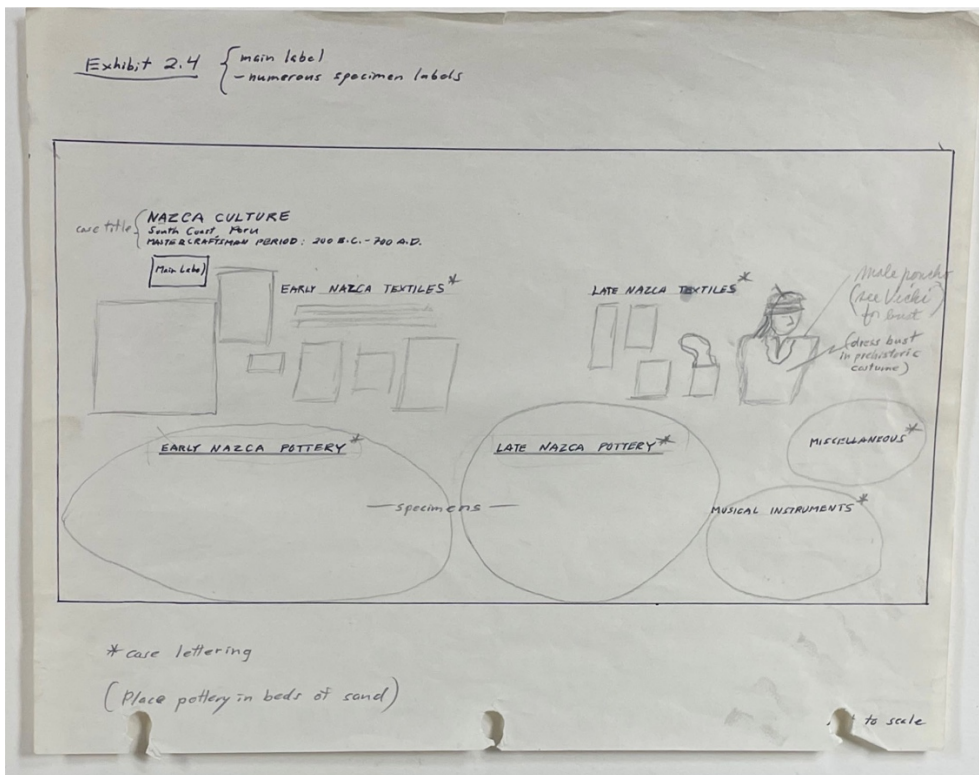 Exhibit 2.4
main label
- numerous specimen labels
case title
NAZCA CULTURE
South Coast Peru
MASTERCRAFTSMAN PERIOD: 200 B.C. - 700 A.D.
Main Label
EARLY NAZCA TEXTILES*
LATE NAZCA TEXTILES*
male poncho
(see Vicki
for bust
(dress bust
in prehistoric
costume)
EARLY NAZCA POTTERY*
LATE NAZCA POTTERY*
MISCELLANEOUS*
— specimens —
MUSICAL INSTRUMENTS*
* case lettering
(Place pottery in beds of sand)
to scale